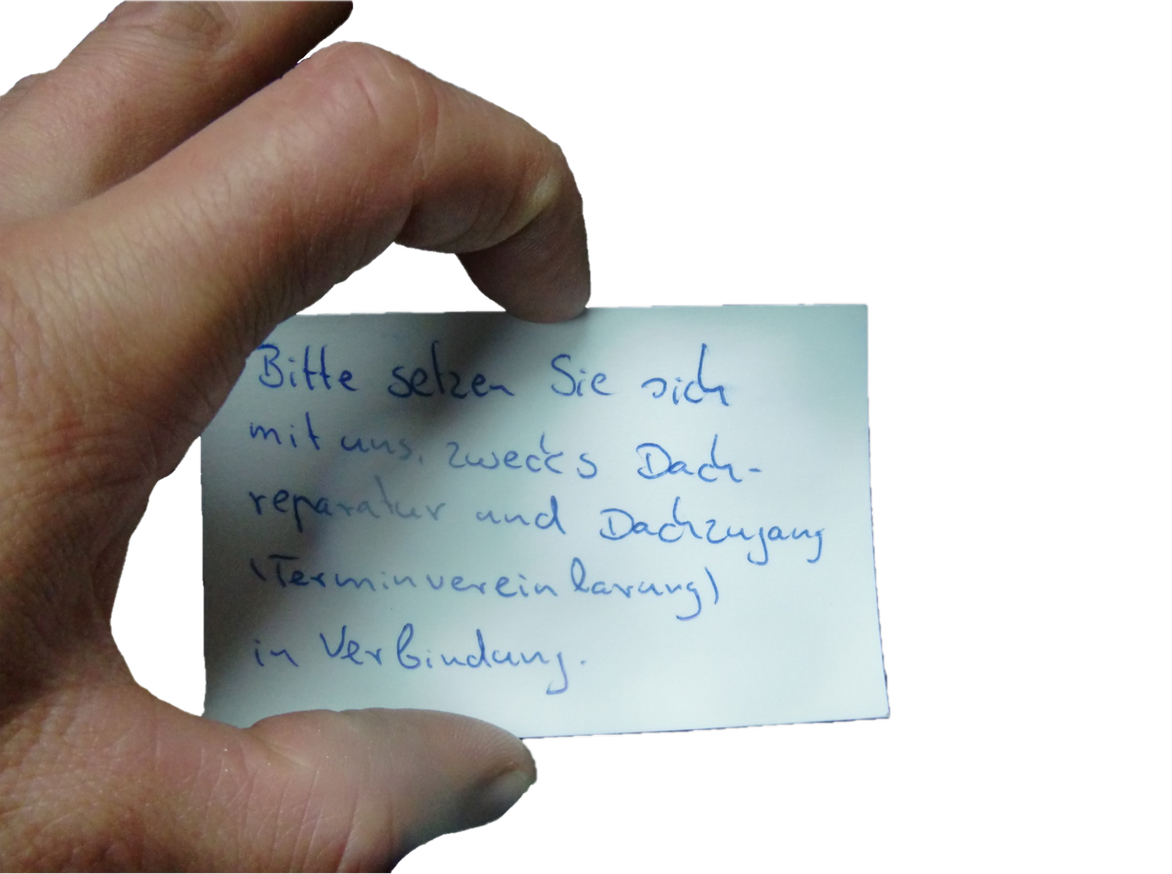 Bitte setzen Sie sich
mit uns, zwecks Dach-
reparatur und Dachzugang
(Terminvereinbarung)
in Verbindung.